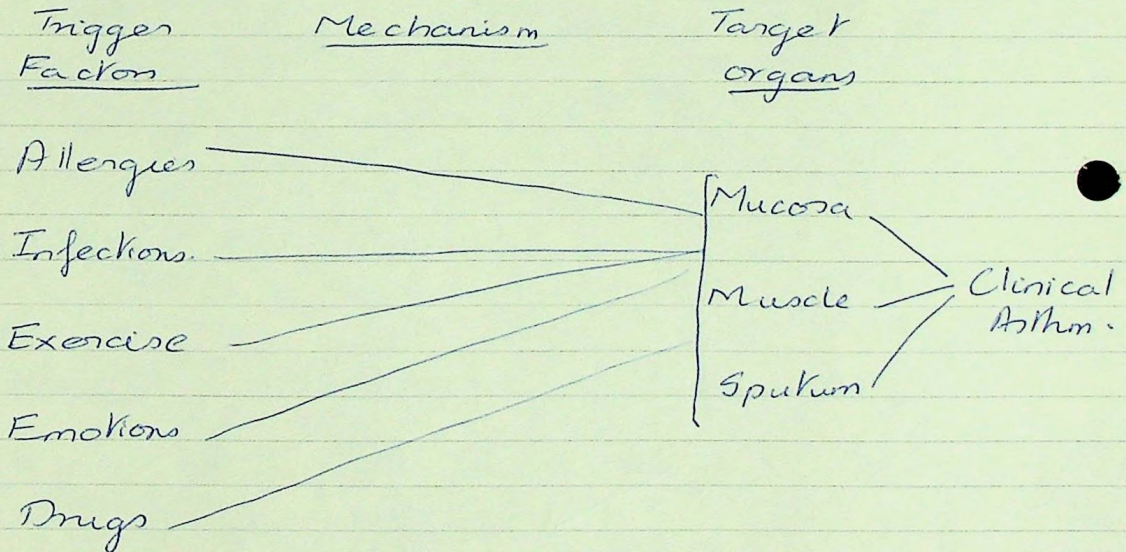 Trigger
Factors
Mechanism
Target
organs
Allergies
Infections.
Exercise
Emotions
Drugs
Mucosa
Muscle
Sputum
Clinical
Asthm.